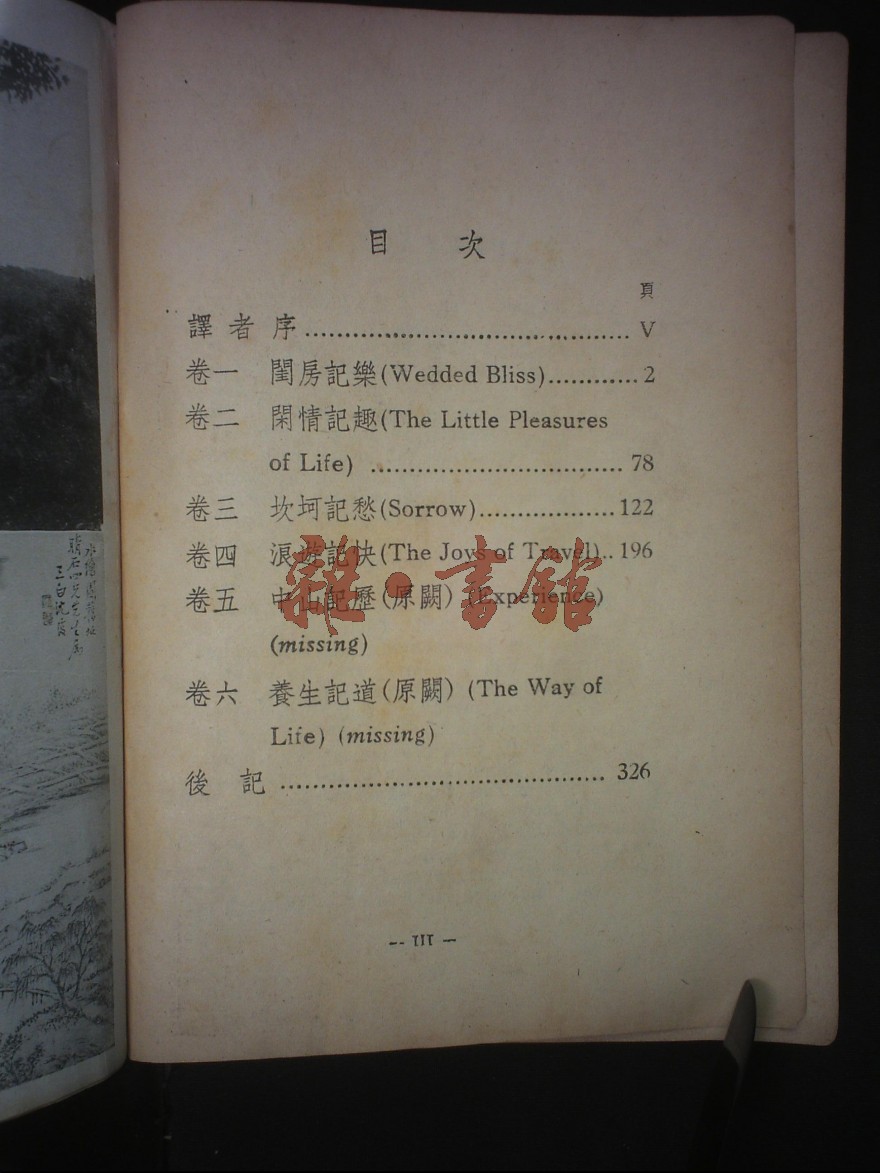 目 次
頁
譯者序........................................ V
卷一 閨房記樂(Wedded Bliss)............2
卷二 閑情記趣(The Little Pleasures
of Life) ............................... 78
卷三 坎坷記愁(Sorrow).................122
卷四 浪遊記快(The Joys of Travel)..196
卷五 中山記歷(原闕) (Experience)
(missing)
卷六 養生記道(原闕) (The Way of
Life) (missing)
後記 ........................................ 326
-- III --
雜·書館
三白沈復